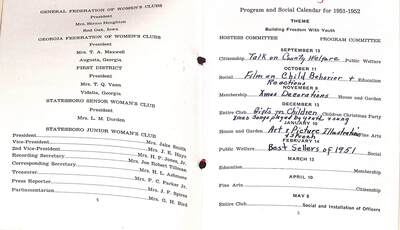 GENERAL FEDERATION OF WOMEN'S CLUBS
President
Mrs. Hiram Houghton
Red Oak, Iowa
GEORGIA FEDERATION OF WOMEN'S CLUBS
President
Mrs. T. A. Maxwell
Augusta, Georgia
FIRST DISTRICT
President
Mrs. T. Q. Vann
Vidalia, Georgia
STATESBORO SENIOR WOMAN'S CLUB
President
Mrs. L. M. Durden
STATESBORO JUNIOR WOMAN'S CLUB
President Mrs. Jake Smith
Vice-President Mrs. J. E. Hays
2nd Vice-President Mrs. H. P. Jones, Jr.
Recording Secretary Mrs. Joe Robert Tillman
Corresponding Secretary Mrs. H. L. Ashmore
Treasurer Mrs. P. C. Parker Jr.
Press Reporter Mrs. J. F. Spires
Parliamentarian Mrs. G. H. Bird
Program and Social Calendar for 1951-1952
THEME
Building Freedom With Youth
HOSTESS COMMITTEE PROGRAM COMMITTEE
SEPTEMBER 13
Citizenship Talk on County Welfare Public Welfare
OCTOBER 11
Social Film on Child Behavior + Education
Reactions
NOVEMBER 8
Membership Xmas Decorations House and Garden
DECEMBER 13
Entire Club Children Children Christmas Party
Xmas Songs played by youth
JANUARY 10
House and Garden Art + Picture Fine Arts
FEBRUARY 14
Public Welfare Best Sellers of 1951 Social
MARCH 13
Education Membership
APRIL 10
Fine Arts Citizenship
MAY 8
Entire Club Social and Installation of Officers
5